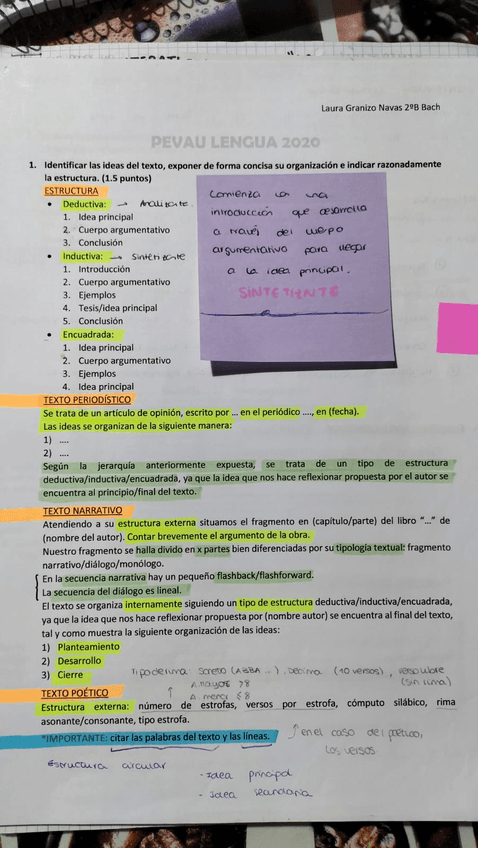 Laura Granizo Navas 2ºB Bach
PEVAU LENGUA 2020
1. Identificar las ideas del texto, exponer de forma concisa su organización e indicar razonadamente
la estructura. (1.5 puntos)
ESTRUCTURA
• Deductiva: → Analizante.
1. Idea principal
2. Cuerpo argumentativo
3. Conclusión
• Inductiva: → Sintetizante
1. Introducción
2. Cuerpo argumentativo
3. Ejemplos
4. Tesis/idea principal
5. Conclusión
• Encuadrada:
1. Idea principal
2. Cuerpo argumentativo
3. Ejemplos
4. Idea principal
Comienza con una
introducción que desarrolla
a través del cuerpo
argumentativo para llegar
a la idea principal.
TEXTO PERIODÍSTICO
Se trata de un artículo de opinión, escrito por ... en el periódico ...., en (fecha).
Las ideas se organizan de la siguiente manera:
1) ....
2) ....
Según la jerarquía anteriormente expuesta, se trata de un tipo de estructura
deductiva/inductiva/encuadrada, ya que la idea que nos hace reflexionar propuesta por el autor se
encuentra al principio/final del texto.
TEXTO NARRATIVO
Atendiendo a su estructura externa situamos el fragmento en (capítulo/parte) del libro "..." de
(nombre del autor). Contar brevemente el argumento de la obra.
Nuestro fragmento se halla divido en x partes bien diferenciadas por su tipología textual: fragmento
narrativo/diálogo/monólogo.
En la secuencia narrativa hay un pequeño flashback/flashforward.
La secuencia del diálogo es lineal.
El texto se organiza internamente siguiendo un tipo de estructura deductiva/inductiva/encuadrada,
ya que la idea que nos hace reflexionar propuesta por (nombre autor) se encuentra al final del texto,
tal y como muestra la siguiente organización de las ideas:
1) Planteamiento
2) Desarrollo
3) Cierre
Tipo de rima: Soneto (ABBA ...), Décima (10 versos), verso libre
(sin rima)
A. mayor >8
A. menor ≤8
TEXTO POÉTICO
Estructura externa: número de estrofas, versos por estrofa, cómputo silábico, rima
asonante/consonante, tipo estrofa.
*IMPORTANTE: citar las palabras del texto y las líneas.
en el caso del poético,
los versos
Estructura circular
- Idea principal
- Idea secundaria